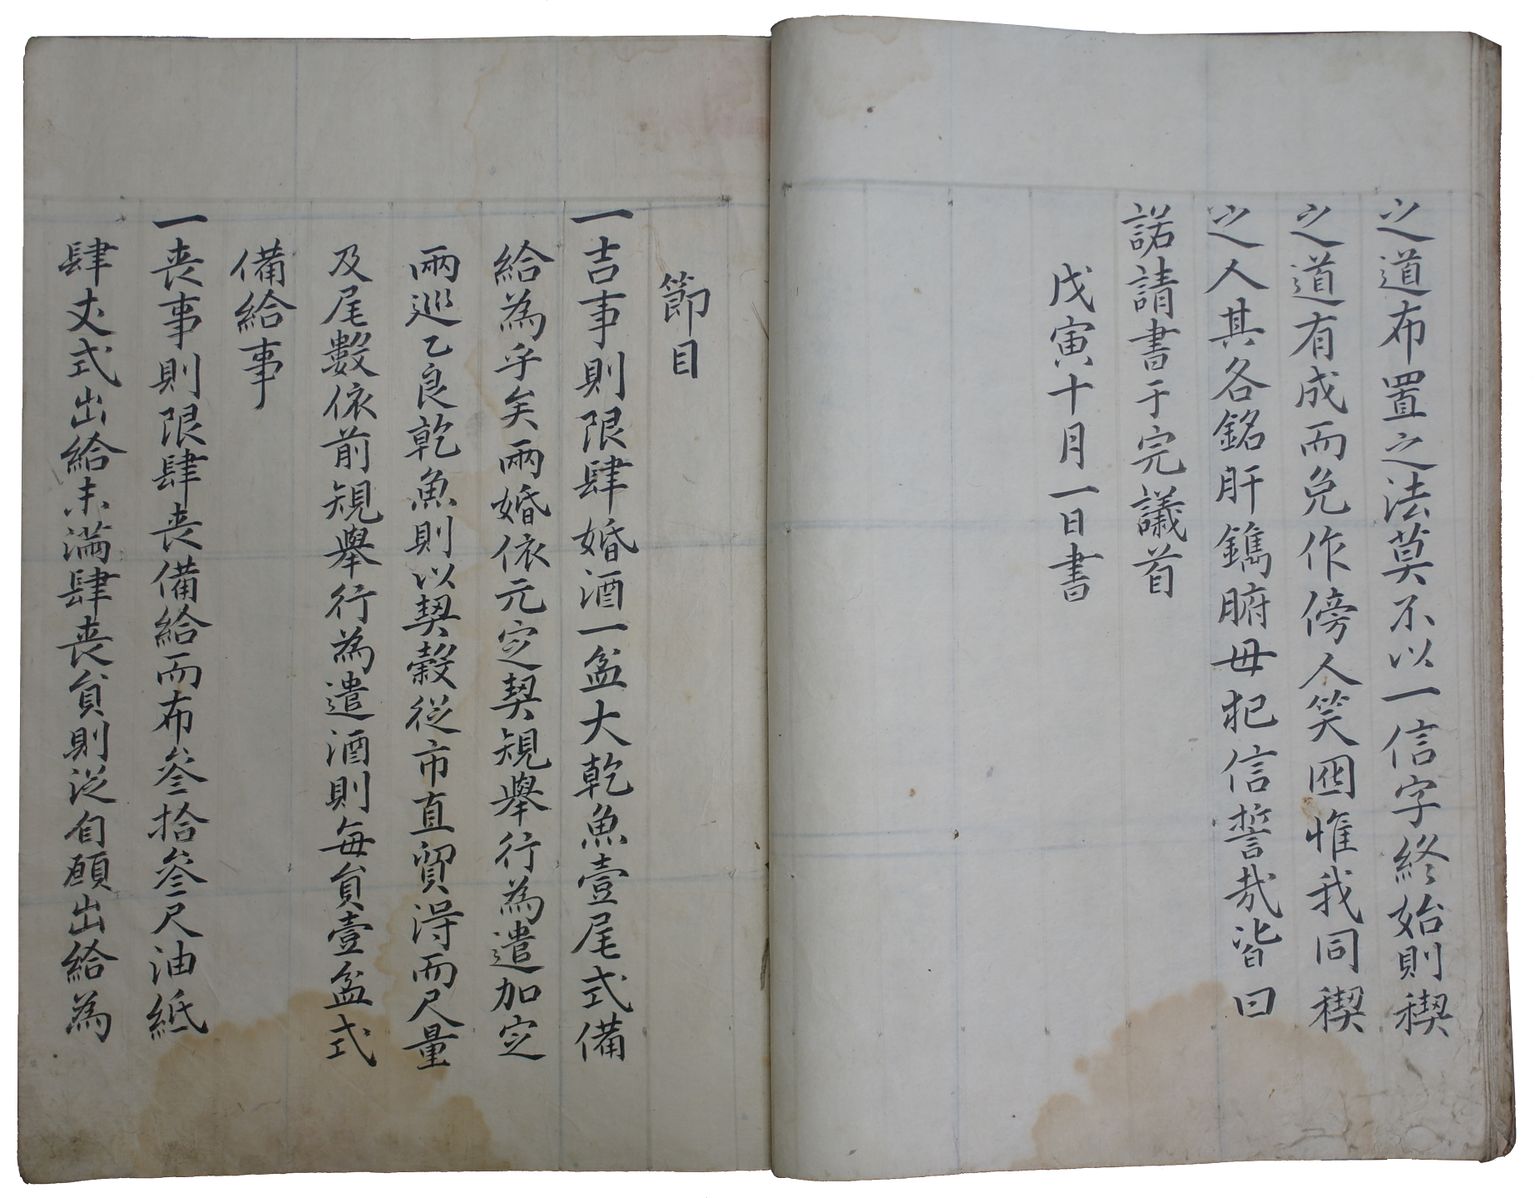 之道布置之法莫不以一信字終始則稧
之道有成而免作傍人笑囮惟我同稧
之人其各銘肝鐫腑毋犯信誓哉皆曰
諾請書于完議首
戊寅十月一日書
節目
一吉事則限肆婚酒一盆大乾魚壹尾式備
給為乎矣兩婚依元定契規舉行為遣加定
兩巡乙良乾魚則以契穀從市直貿淂而尺量
及尾數依前規舉行為遣酒則每貟壹盆式
備給事
一丧事則限肆丧備給而布叄拾叄尺油紙
肆丈式出給未滿肆丧貟則從自願出給為